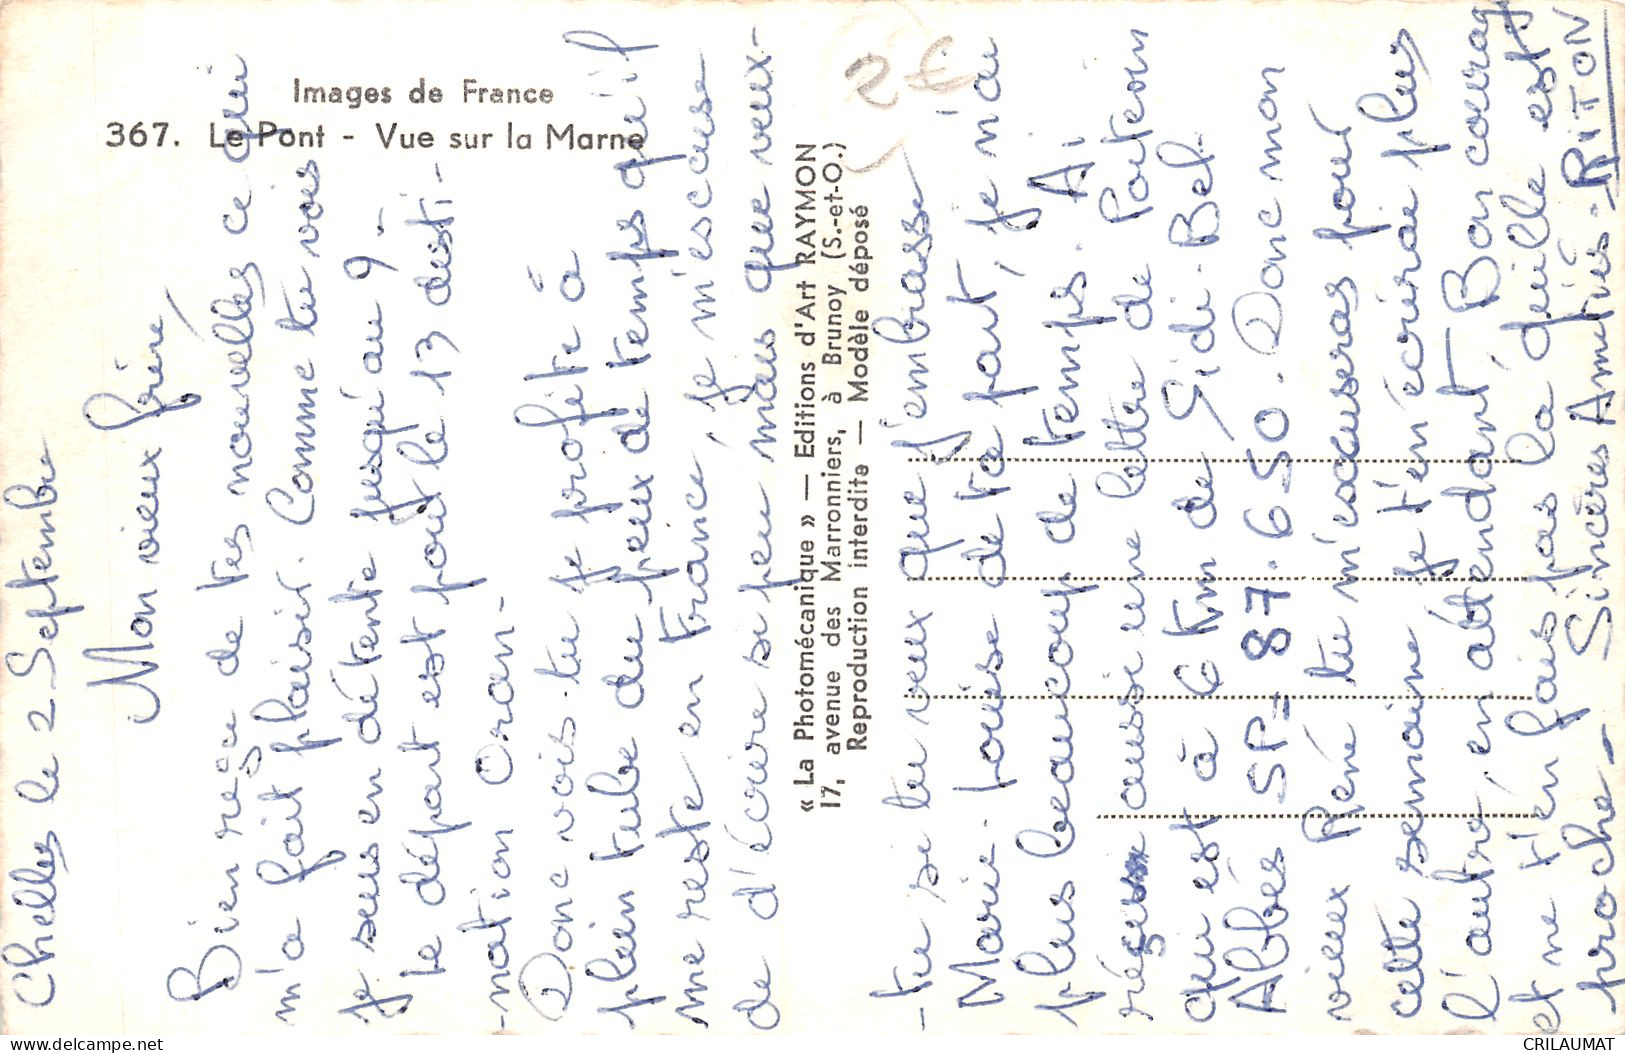 Images de France
367. Le Pont - Vue sur la Marne
Chelles le 2 Septembre
Mon vieux frère,
Bien reçu de tes nouvelles ce qui
m'a fait plaisir. Comme tu vois
je suis en détente jusqu'au 9-
le départ est pour le 13 desti-
-nation Oran-
Donc vois-tu je profite à
plein tube du peux de temps qu'il
me reste en France, je m'escuse
de d'écrire si peu mais que veux-
« La Photomécanique » — Editions d'Art RAYMON
17, avenue des Marronniers, à Brunoy (S.-et-O.)
Reproduction interdite — Modèle déposé
2€
-tu si tu veux que j'embrasse
Marie-Louise de ta part, je n'ai
plus beaucoup de temps. Ai
reçu aussi une lettre de Poitevin
qui est à 6 km de Sidi-Bel-
Abbés SP= 87.650. Donc mon
vieux René tu m'excuseras pour
cette semaine je t'en écrirai plus
l'autre, en attendant Bon courage
et ne t'en fais pas la quille est
proche- Sincères Amitiés- RITON
www.delcampe.net
CRILAUMAT